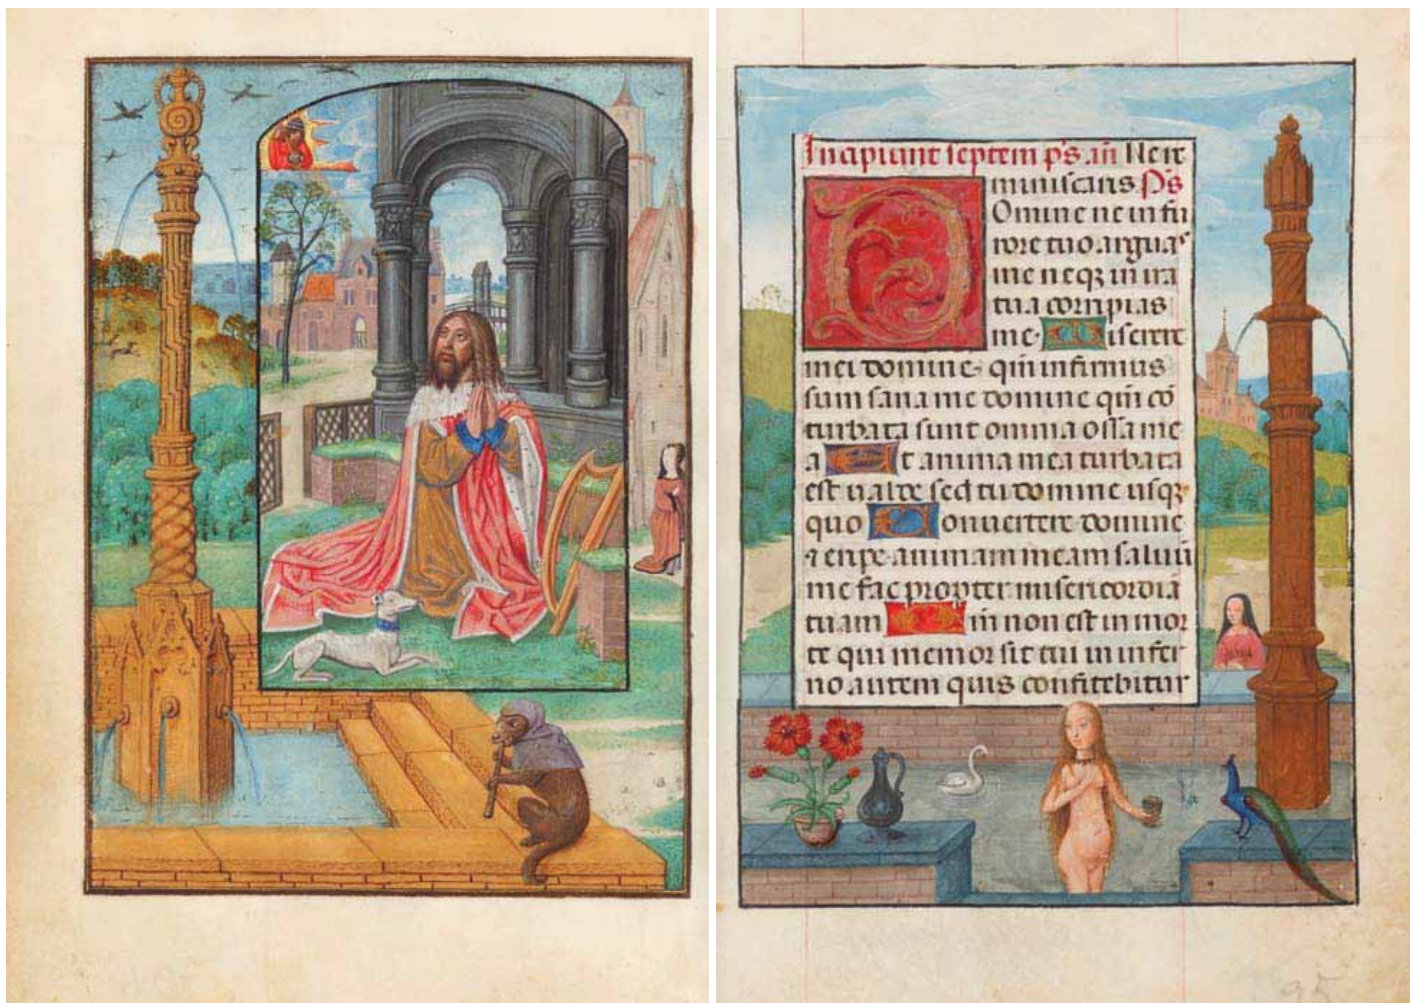 Incipiunt septem ps. an̄ Ne re
miniscaris Ps
DOmine ne in fu
rore tuo arguas
me neqꝫ in ira
tua corripias
me. Miserere
mei domine qm̄ infirmus
sum sana me domine qm̄ cō
turbata sunt omnia ossa me
a Et anima mea turbata
est valde sed tu domine usqꝫ
quo Convertere domine
& eripe animam meam salvū
me fac propter misericordiā
tuam Qm̄ non est in mor
te qui memor sit tui in infer
no autem quis confitebitur